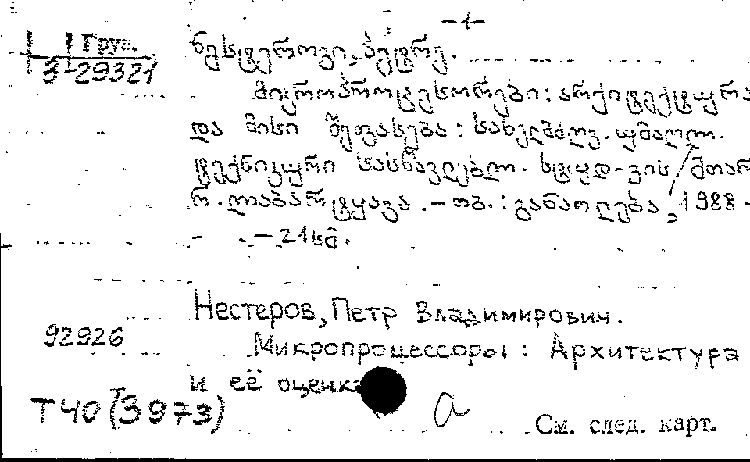 -1-
Груз.
3-29321
ნესტეროვი, პეტრე.
მიკროპროცესორები: არქიტექტურა
და მისი შეფასება: სახელმძღვ. უმაღლ.
ტექნიკური სასწავლებლ. სტუდ-ვის / მთარ
რ. ლაბარტყავა. - თბ.: განათლება, 1988 -
- 21სმ.
Нестеров, Петр Владимирович.
92926
Микропроцессоры: Архитектура
и её оценка
Т40(3973)
a
См. след. карт.